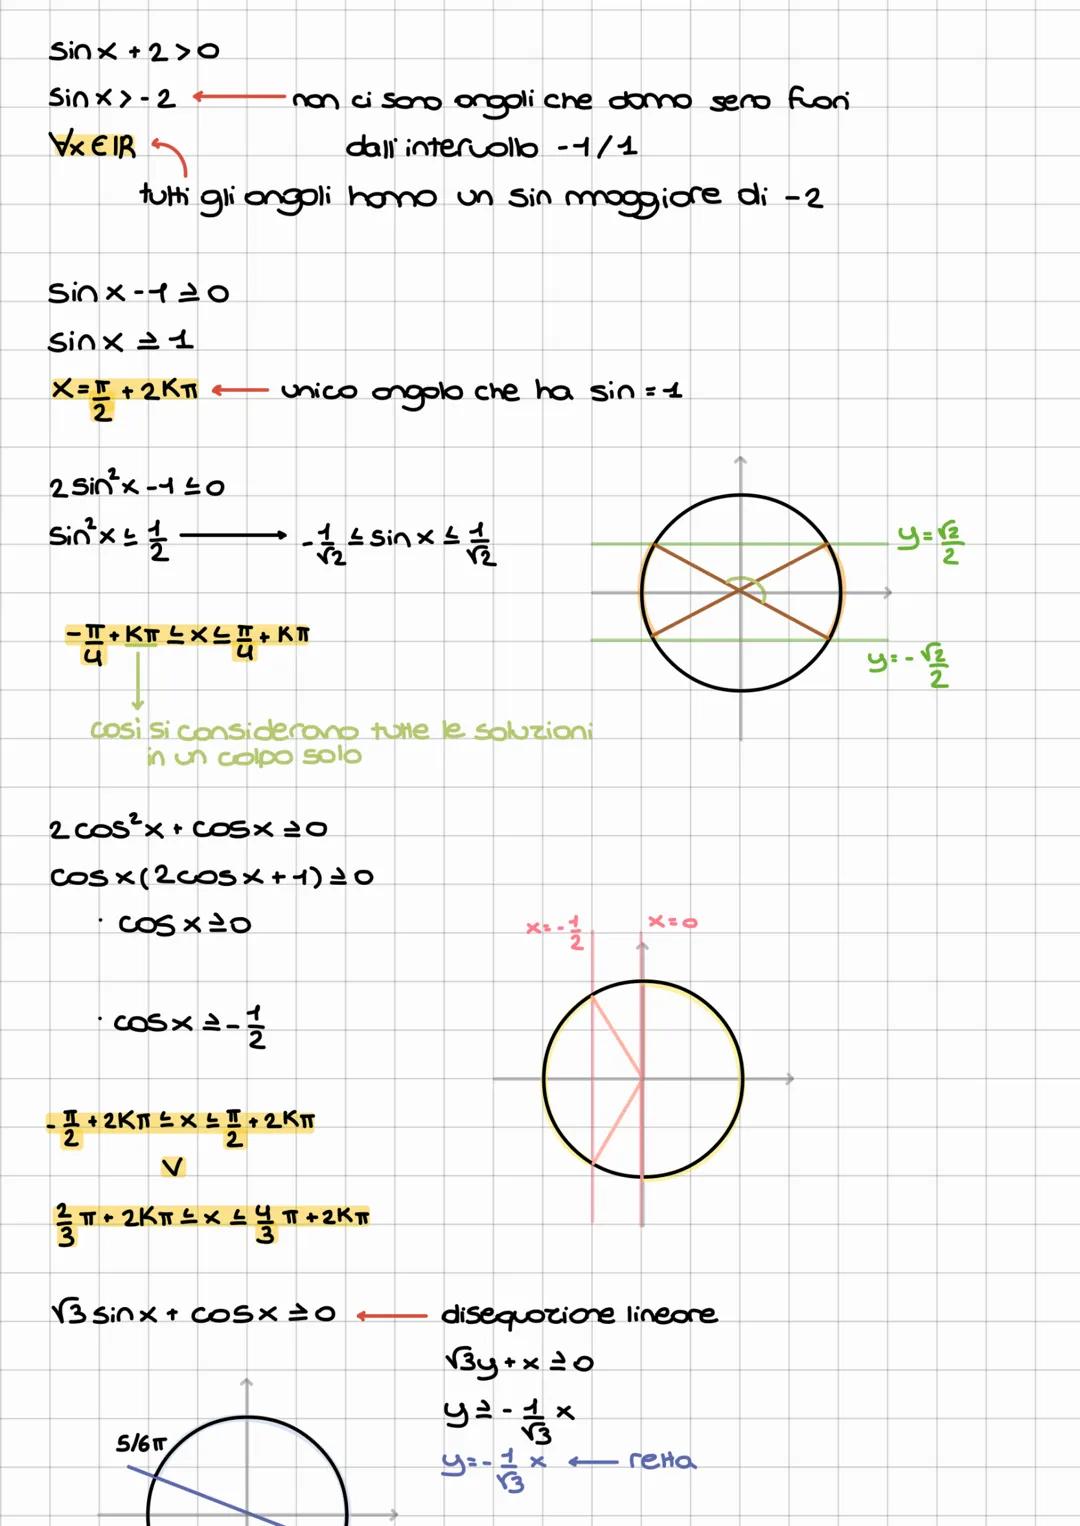 sinx + 2 > 0
sinx > -2 ← non ci sono angoli che danno seno fuori
dall'intervallo -1/1
∀x ∈ ℝ
tutti gli angoli hanno un sin maggiore di -2
sinx - 1 ≥ 0
sinx ≥ 1
x = π/2 + 2Kπ ← unico angolo che ha sin = 1
2sin²x - 1 ≤ 0
sin²x ≤ 1/2 → -1/√2 ≤ sinx ≤ 1/√2
y = √2/2
y = -√2/2
-π/4 + Kπ ≤ x ≤ π/4 + Kπ
così si considerano tutte le soluzioni
in un colpo solo
2cos²x + cosx ≥ 0
cosx(2cosx + 1) ≥ 0
· cosx ≥ 0
· cosx ≥ -1/2
x = -1/2
x = 0
-π/2 + 2Kπ ≤ x ≤ π/2 + 2Kπ
V
2/3 π + 2Kπ ≤ x ≤ 4/3 π + 2Kπ
√3 sinx + cosx ≥ 0 ← disequazione lineare
√3y + x ≥ 0
y ≥ -1/√3 x
y = -1/√3 x ← retta
5/6π